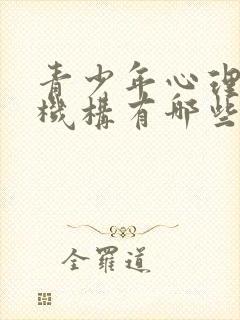 青少年心理
機構有哪些
全羅道